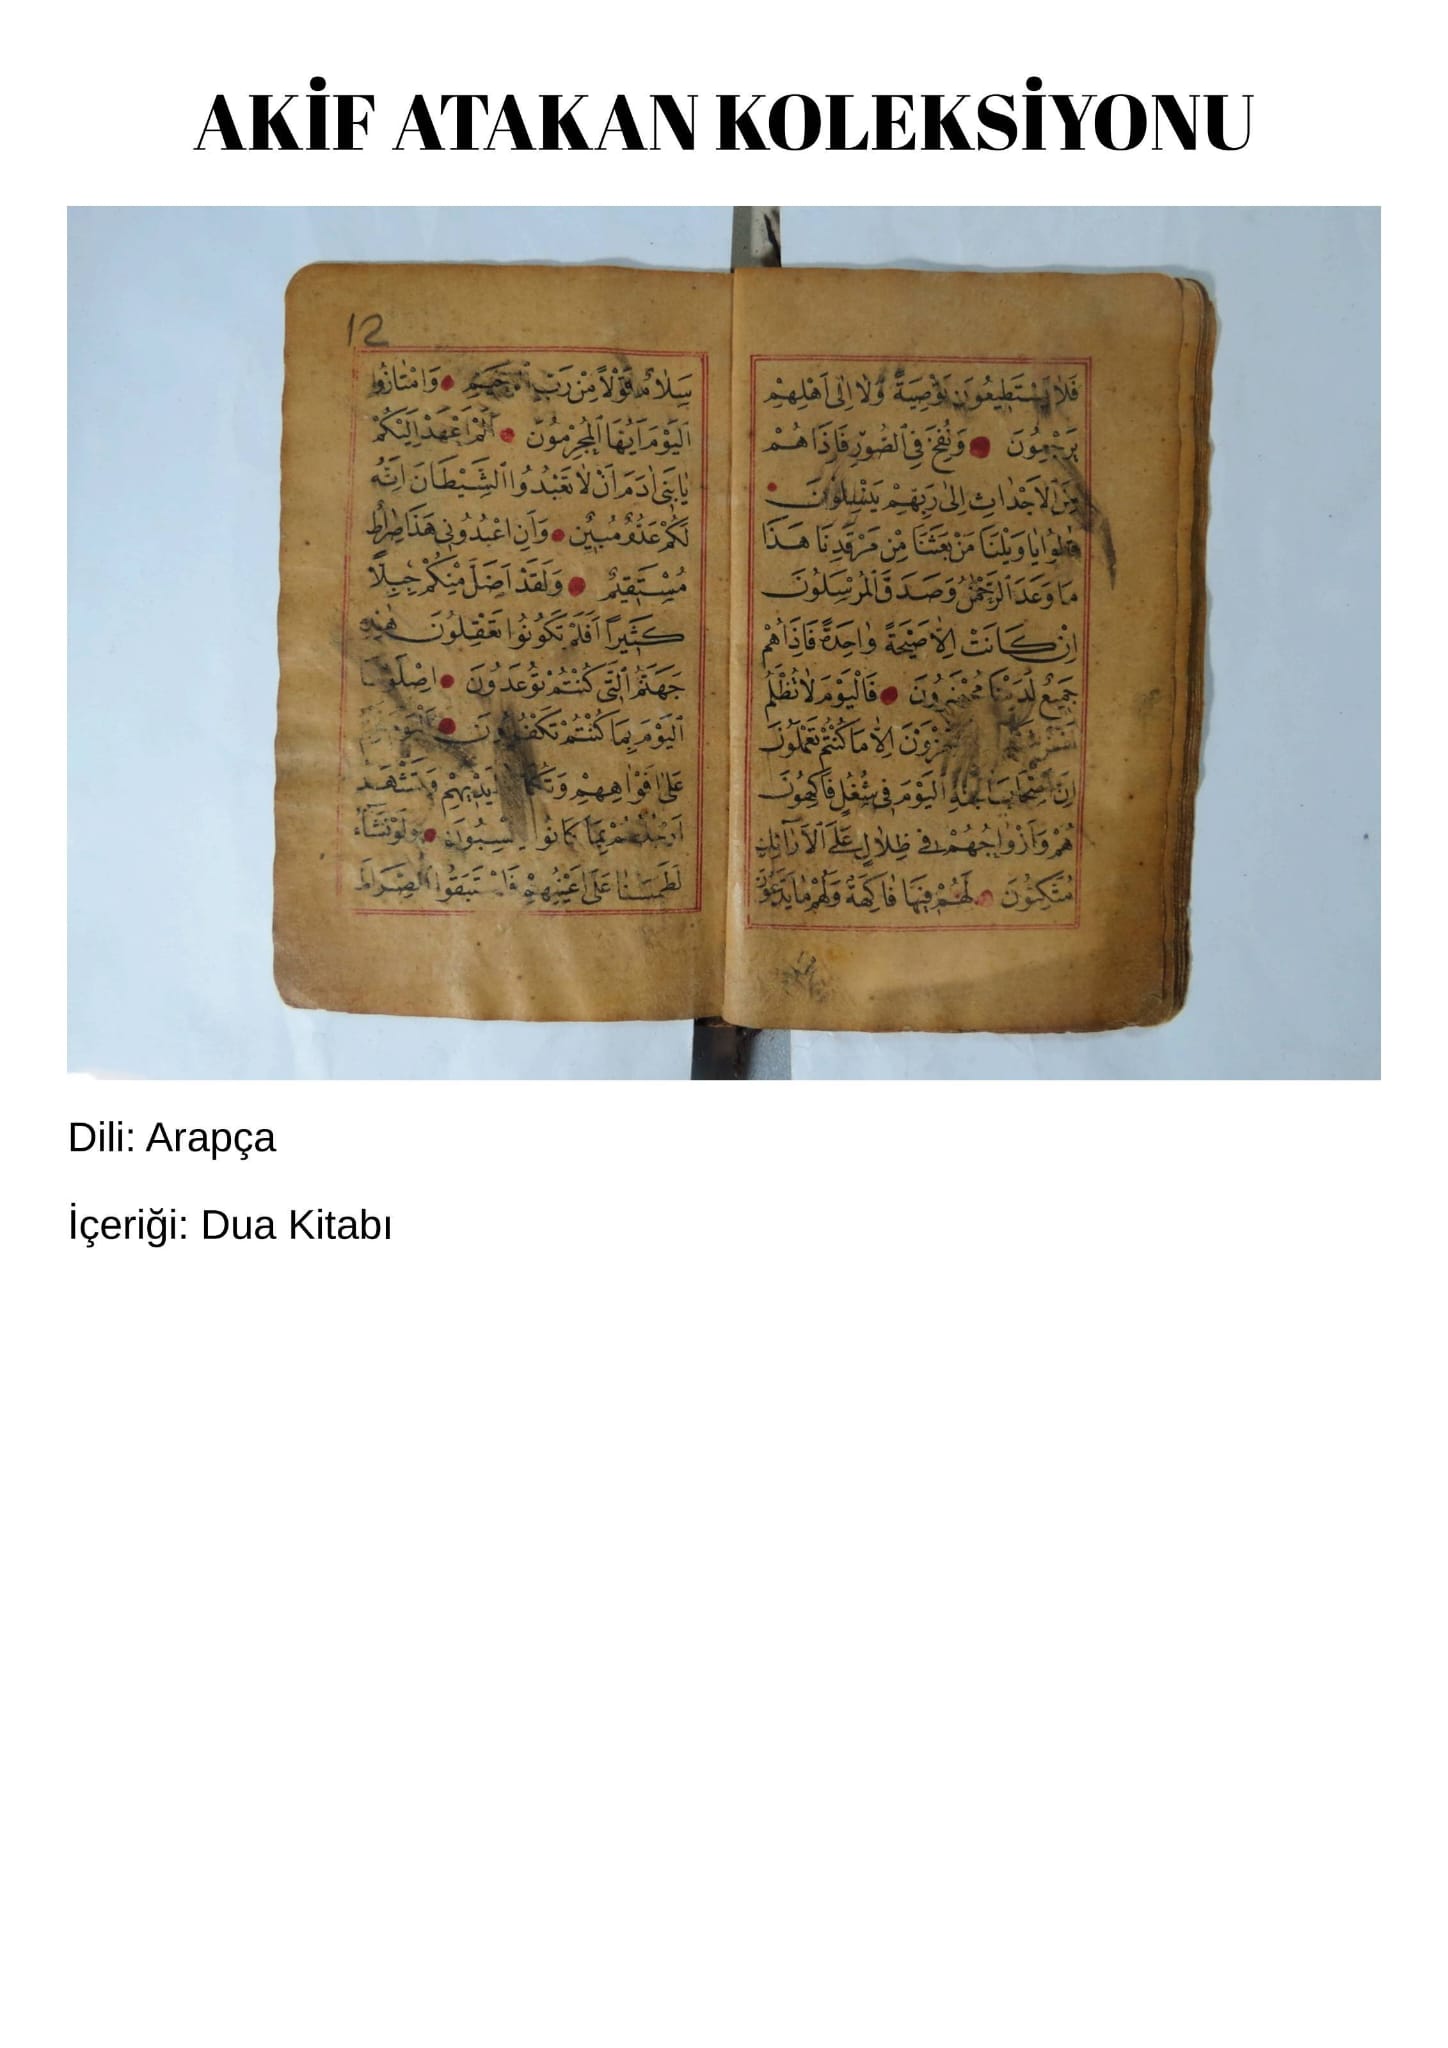 AKİF ATAKAN KOLEKSİYONU
فَلَا يَسْتَطِيعُونَ تَوْصِيَةً وَلَا اِلٰى اَهْلِهِمْ
يَرْجِعُونَ وَنُفِخَ فِي الصُّورِ فَاِذَا هُمْ
مِنَ الْاَجْدَاثِ اِلٰى رَبِّهِمْ يَنْسِلُونَ
قَالُوا يَا وَيْلَنَا مَنْ بَعَثَنَا مِنْ مَرْقَدِنَا هٰذَا
مَا وَعَدَ الرَّحْمٰنُ وَصَدَقَ الْمُرْسَلُونَ
اِنْ كَانَتْ اِلَّا صَيْحَةً وَاحِدَةً فَاِذَا هُمْ
جَمِيعٌ لَدَيْنَا مُحْضَرُونَ فَالْيَوْمَ لَا تُظْلَمُ
تُجْزَوْنَ اِلَّا مَا كُنْتُمْ تَعْمَلُونَ
اِنَّ اَصْحَابَ الْجَنَّةِ الْيَوْمَ فِي شُغُلٍ فَاكِهُونَ
هُمْ وَاَزْوَاجُهُمْ فِي ظِلَالٍ عَلَى الْاَرَائِكِ
مُتَّكِئُونَ لَهُمْ فِيهَا فَاكِهَةٌ وَلَهُمْ مَا يَدَّعُونَ
12
سَلَامٌ قَوْلًا مِنْ رَبٍّ رَحِيمٍ وَامْتَازُوا
الْيَوْمَ اَيُّهَا الْمُجْرِمُونَ اَلَمْ اَعْهَدْ اِلَيْكُمْ
يَا بَنِي اٰدَمَ اَنْ لَا تَعْبُدُوا الشَّيْطَانَ اِنَّهُ
لَكُمْ عَدُوٌّ مُبِينٌ وَاَنِ اعْبُدُونِي هٰذَا صِرَاطٌ
مُسْتَقِيمٌ وَلَقَدْ اَضَلَّ مِنْكُمْ جِبِلًّا
كَثِيرًا اَفَلَمْ تَكُونُوا تَعْقِلُونَ هٰذِهِ
جَهَنَّمُ الَّتِي كُنْتُمْ تُوعَدُونَ اِصْلَوْهَا
الْيَوْمَ بِمَا كُنْتُمْ تَكْفُرُونَ اَلْيَوْمَ
عَلٰى اَفْوَاهِهِمْ اَيْدِيهِمْ وَتَشْهَدُ
اَرْجُلُهُمْ بِمَا كَانُوا يَكْسِبُونَ وَلَوْ نَشَاءُ
لَطَمَسْنَا عَلٰى اَعْيُنِهِمْ فَاسْتَبَقُوا الصِّرَاطَ
Dili: Arapça
İçeriği: Dua Kitabı